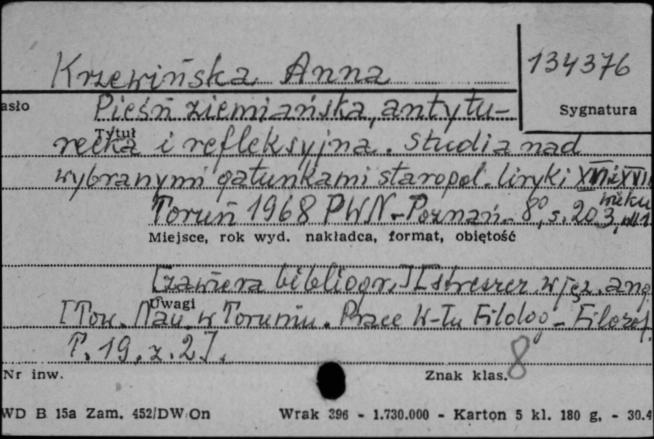 Krzewińska Anna
134376
asło
Pieśń ziemiańska, antytu-
Sygnatura
Tytuł
recka i refleksyjna. Studia nad
wybranymi gatunkami staropol. liryki XVI i XVII
wieku
Toruń 1968 PWN - Poznań. 8°, s. 203,
Miejsce, rok wyd. nakładca, format, objętość
[zawiera bibliogr.] [streszcz. w jęz. ang
Uwagi
[Tow. Nau. w Toruniu. Prace W-łu Filolog. - Filozof.
T. 19, z. 2].
8
Nr inw.
Znak klas.
WD B 15a Zam. 452/DW/On
Wrak 396 - 1.730.000 - Karton 5 kl. 180 g. - 30.4